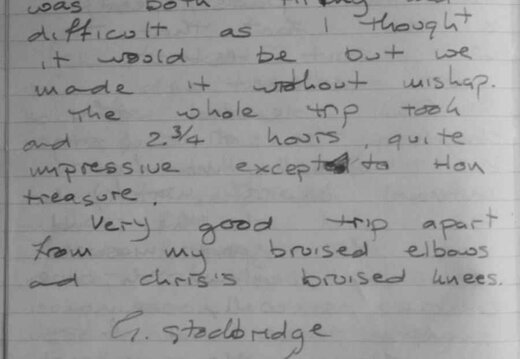 was both
difficult as I thought
it would be but we
made it without mishap.
The whole trip took
and 2.3/4 hours, quite
impressive except to Hon
treasure.
Very good trip apart
from my bruised elbows
and chris's bruised knees.
G. Stockbridge